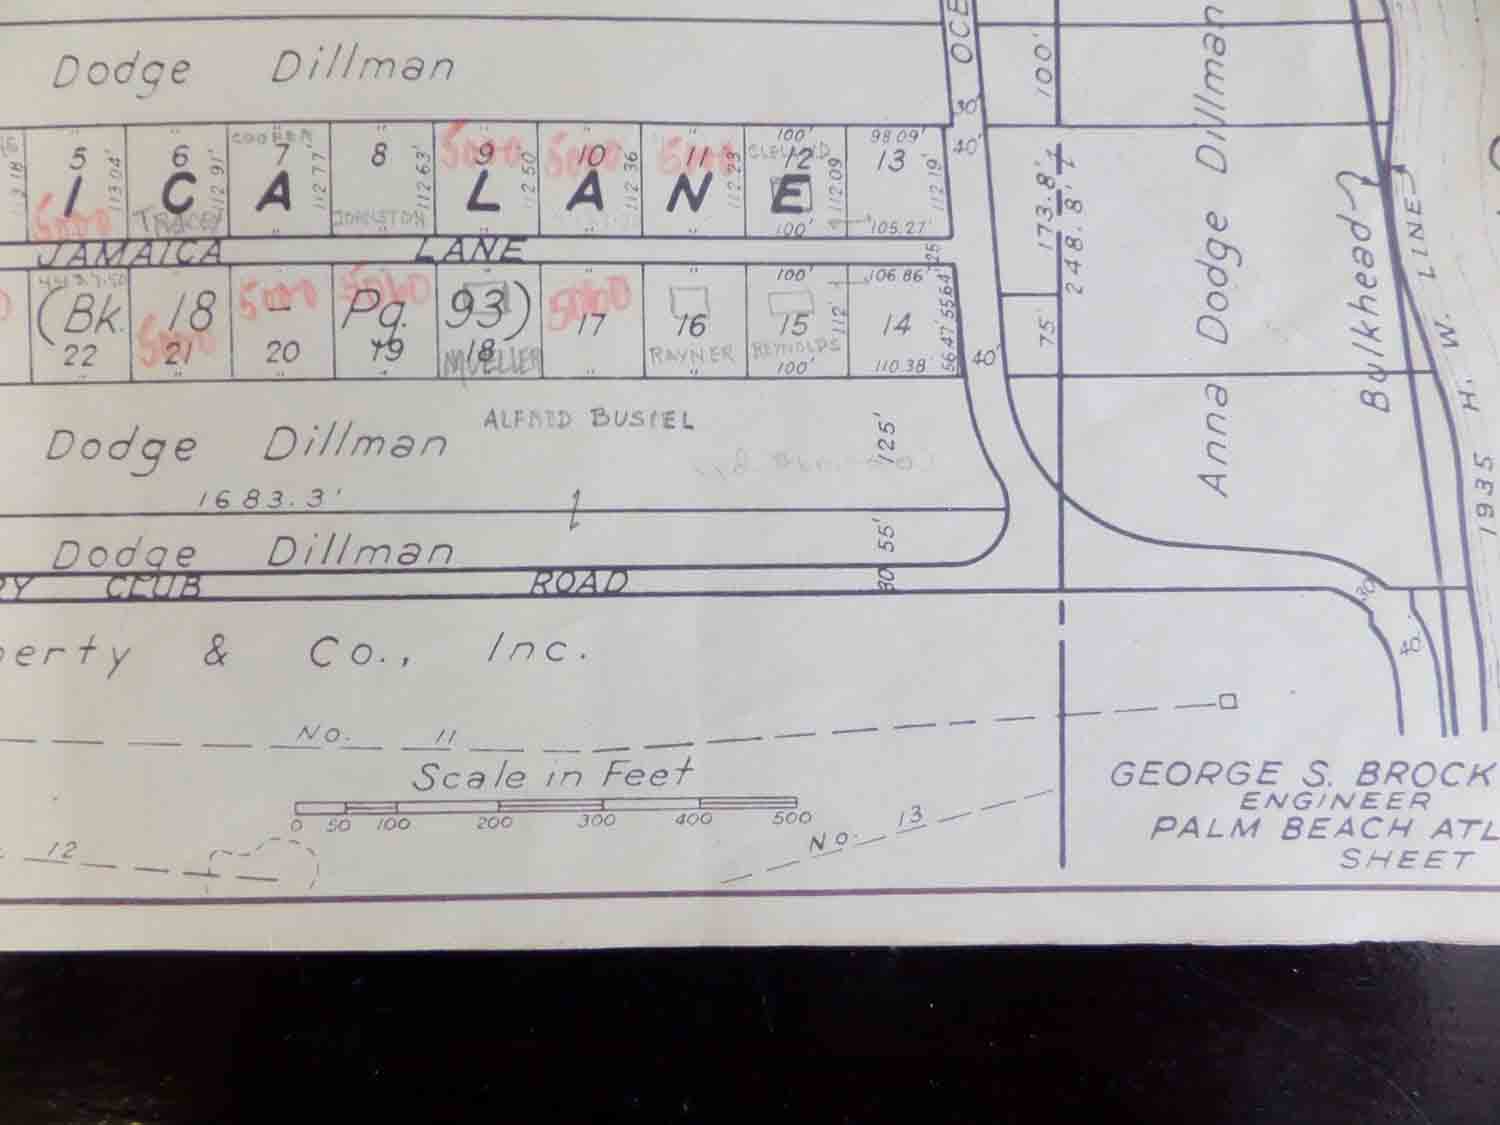 Dodge Dillman
5 6 7 8 9 10 11 12 13
COOPER
5000 5000 5000
CLELAND
100' 98.09'
113.04' 112.91' 112.77' 112.63' 112.50 112.36 112.23 112.09 112.19'
I C A L A N E
5000
TRACEY
JOHNSTON
100' 105.27'
JAMAICA LANE
25'
100' 106.86'
5000 5000 5000
(Bk. 18 - Pg. 93)
5000
22 21 20 19 18 17 16 15 14
112'
MUELLER
RAYNER
REYNOLDS
100' 110.38'
55.64'
56.47'
Dodge Dillman
ALFRED BUSIEL
125'
1683.3'
Dodge Dillman
55'
CLUB ROAD
30'
erty & Co., Inc.
NO. 11
Scale in Feet
0 50 100 200 300 400 500
12
NO. 13
OCE
30'
40'
40'
100'
173.8'±
248.8'±
75'
Anna Dodge Dillman
Bulkhead
1935 H. W. LINE
30'
40'
GEORGE S. BROCK
ENGINEER
PALM BEACH ATL
SHEET